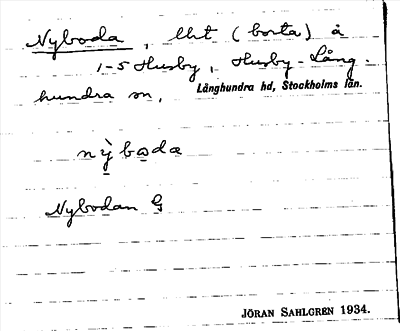 Nyboda, lht (borta) å
1-5 Husby, Husby-Lång-
hundra sn, Långhundra hd, Stockholms län.
nỳboda
Nybodan G
JÖRAN SAHLGREN 1934.